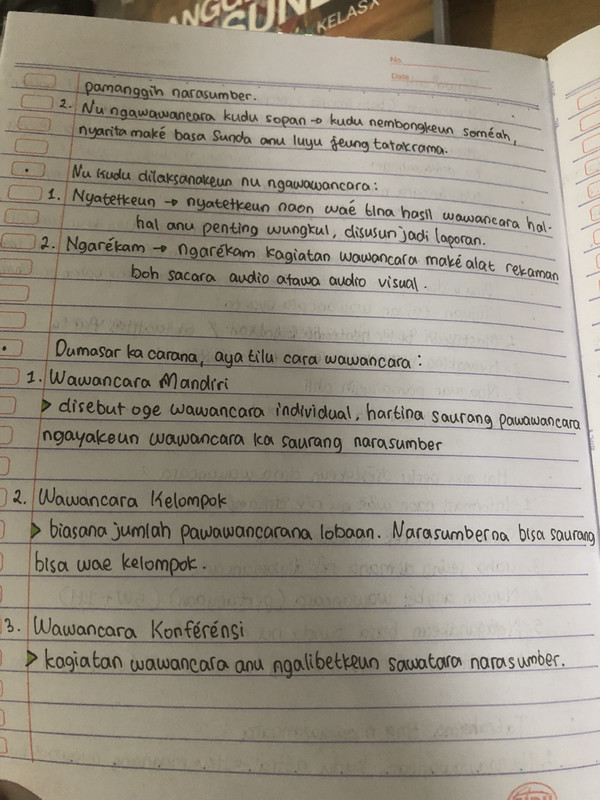 ANGG
SUN
KELAS X
No.
Date
pamanggih narasumber.
2. Nu ngawawancara kudu sopan → kudu nembongkeun soméah,
nyarita maké basa Sunda anu luyu jeung tatakrama.
• Nu kudu dilaksanakeun nu ngawawancara :
1. Nyatetkeun → nyatetkeun naon waé tina hasil wawancara hal-
hal anu penting wungkul, disusun jadi laporan.
2. Ngarékam → ngarékam kagiatan wawancara maké alat rekaman
boh sacara audio atawa audio visual.
• Dumasar ka carana, aya tilu cara wawancara :
1. Wawancara Mandiri
▶ disebut oge wawancara individual, hartina saurang pawawancara
ngayakeun wawancara ka saurang narasumber
2. Wawancara Kelompok
▶ biasana jumlah pawawancarana lobaan. Narasumberna bisa saurang
bisa wae kelompok.
3. Wawancara Konférénsi
▶ kagiatan wawancara anu ngalibetkeun sawatara narasumber.